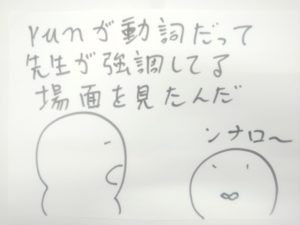 runが動詞だって
先生が強調してる
場面を見たんだ
ンナロ〜